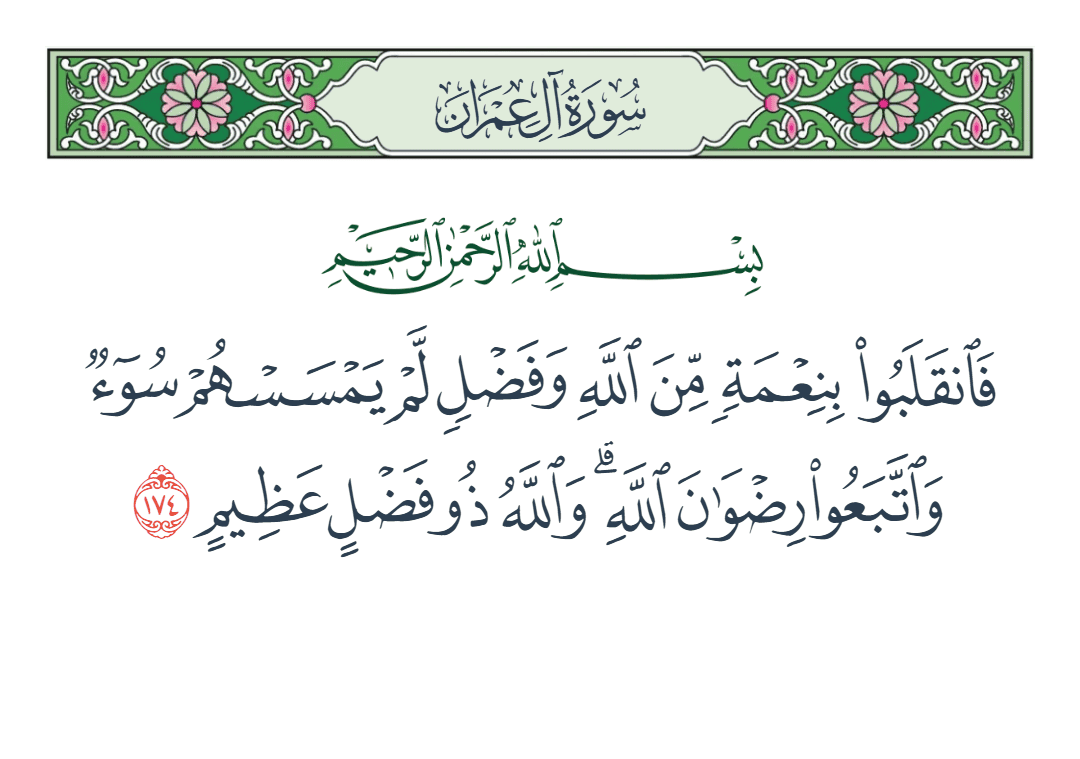 سُورَةُ آلِ عِمْرَانَ
بِسْمِ ٱللَّهِ ٱلرَّحْمَٰنِ ٱلرَّحِيمِ
فَٱنقَلَبُوا۟ بِنِعْمَةٍ مِّنَ ٱللَّهِ وَفَضْلٍ لَّمْ يَمْسَسْهُمْ سُوٓءٌ
وَٱتَّبَعُوا۟ رِضْوَٰنَ ٱللَّهِ ۗ وَٱللَّهُ ذُو فَضْلٍ عَظِيمٍ ١٧٤